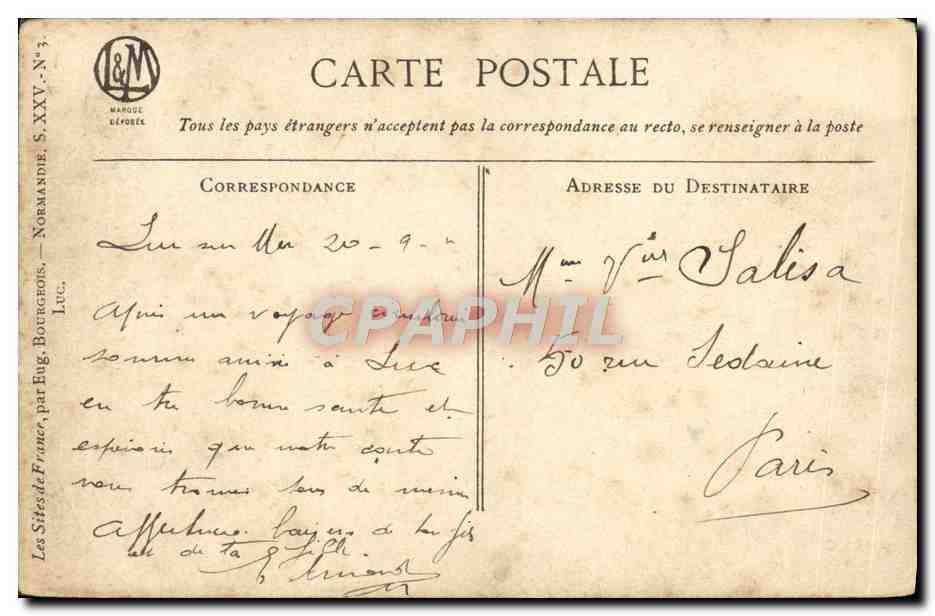 L&M
MARQUE
DÉPOSÉE
CARTE POSTALE
Tous les pays étrangers n'acceptent pas la correspondance au recto, se renseigner à la poste
CORRESPONDANCE
Luc sur Mer 20 - 9 -
Après un voyage
sommes arrivés à Luc
en très bonne santé et
espérons que notre carte
vous trouve tous de même
Affectueux baisers de ton fils
et de ta
ADRESSE DU DESTINATAIRE
Mme Salisa
50 rue Sedaine
Paris
Les Sites de France, par Eug. Bourgeois. — NORMANDIE. S. XXV. - N° 3.
LUC.
CPAPHIL